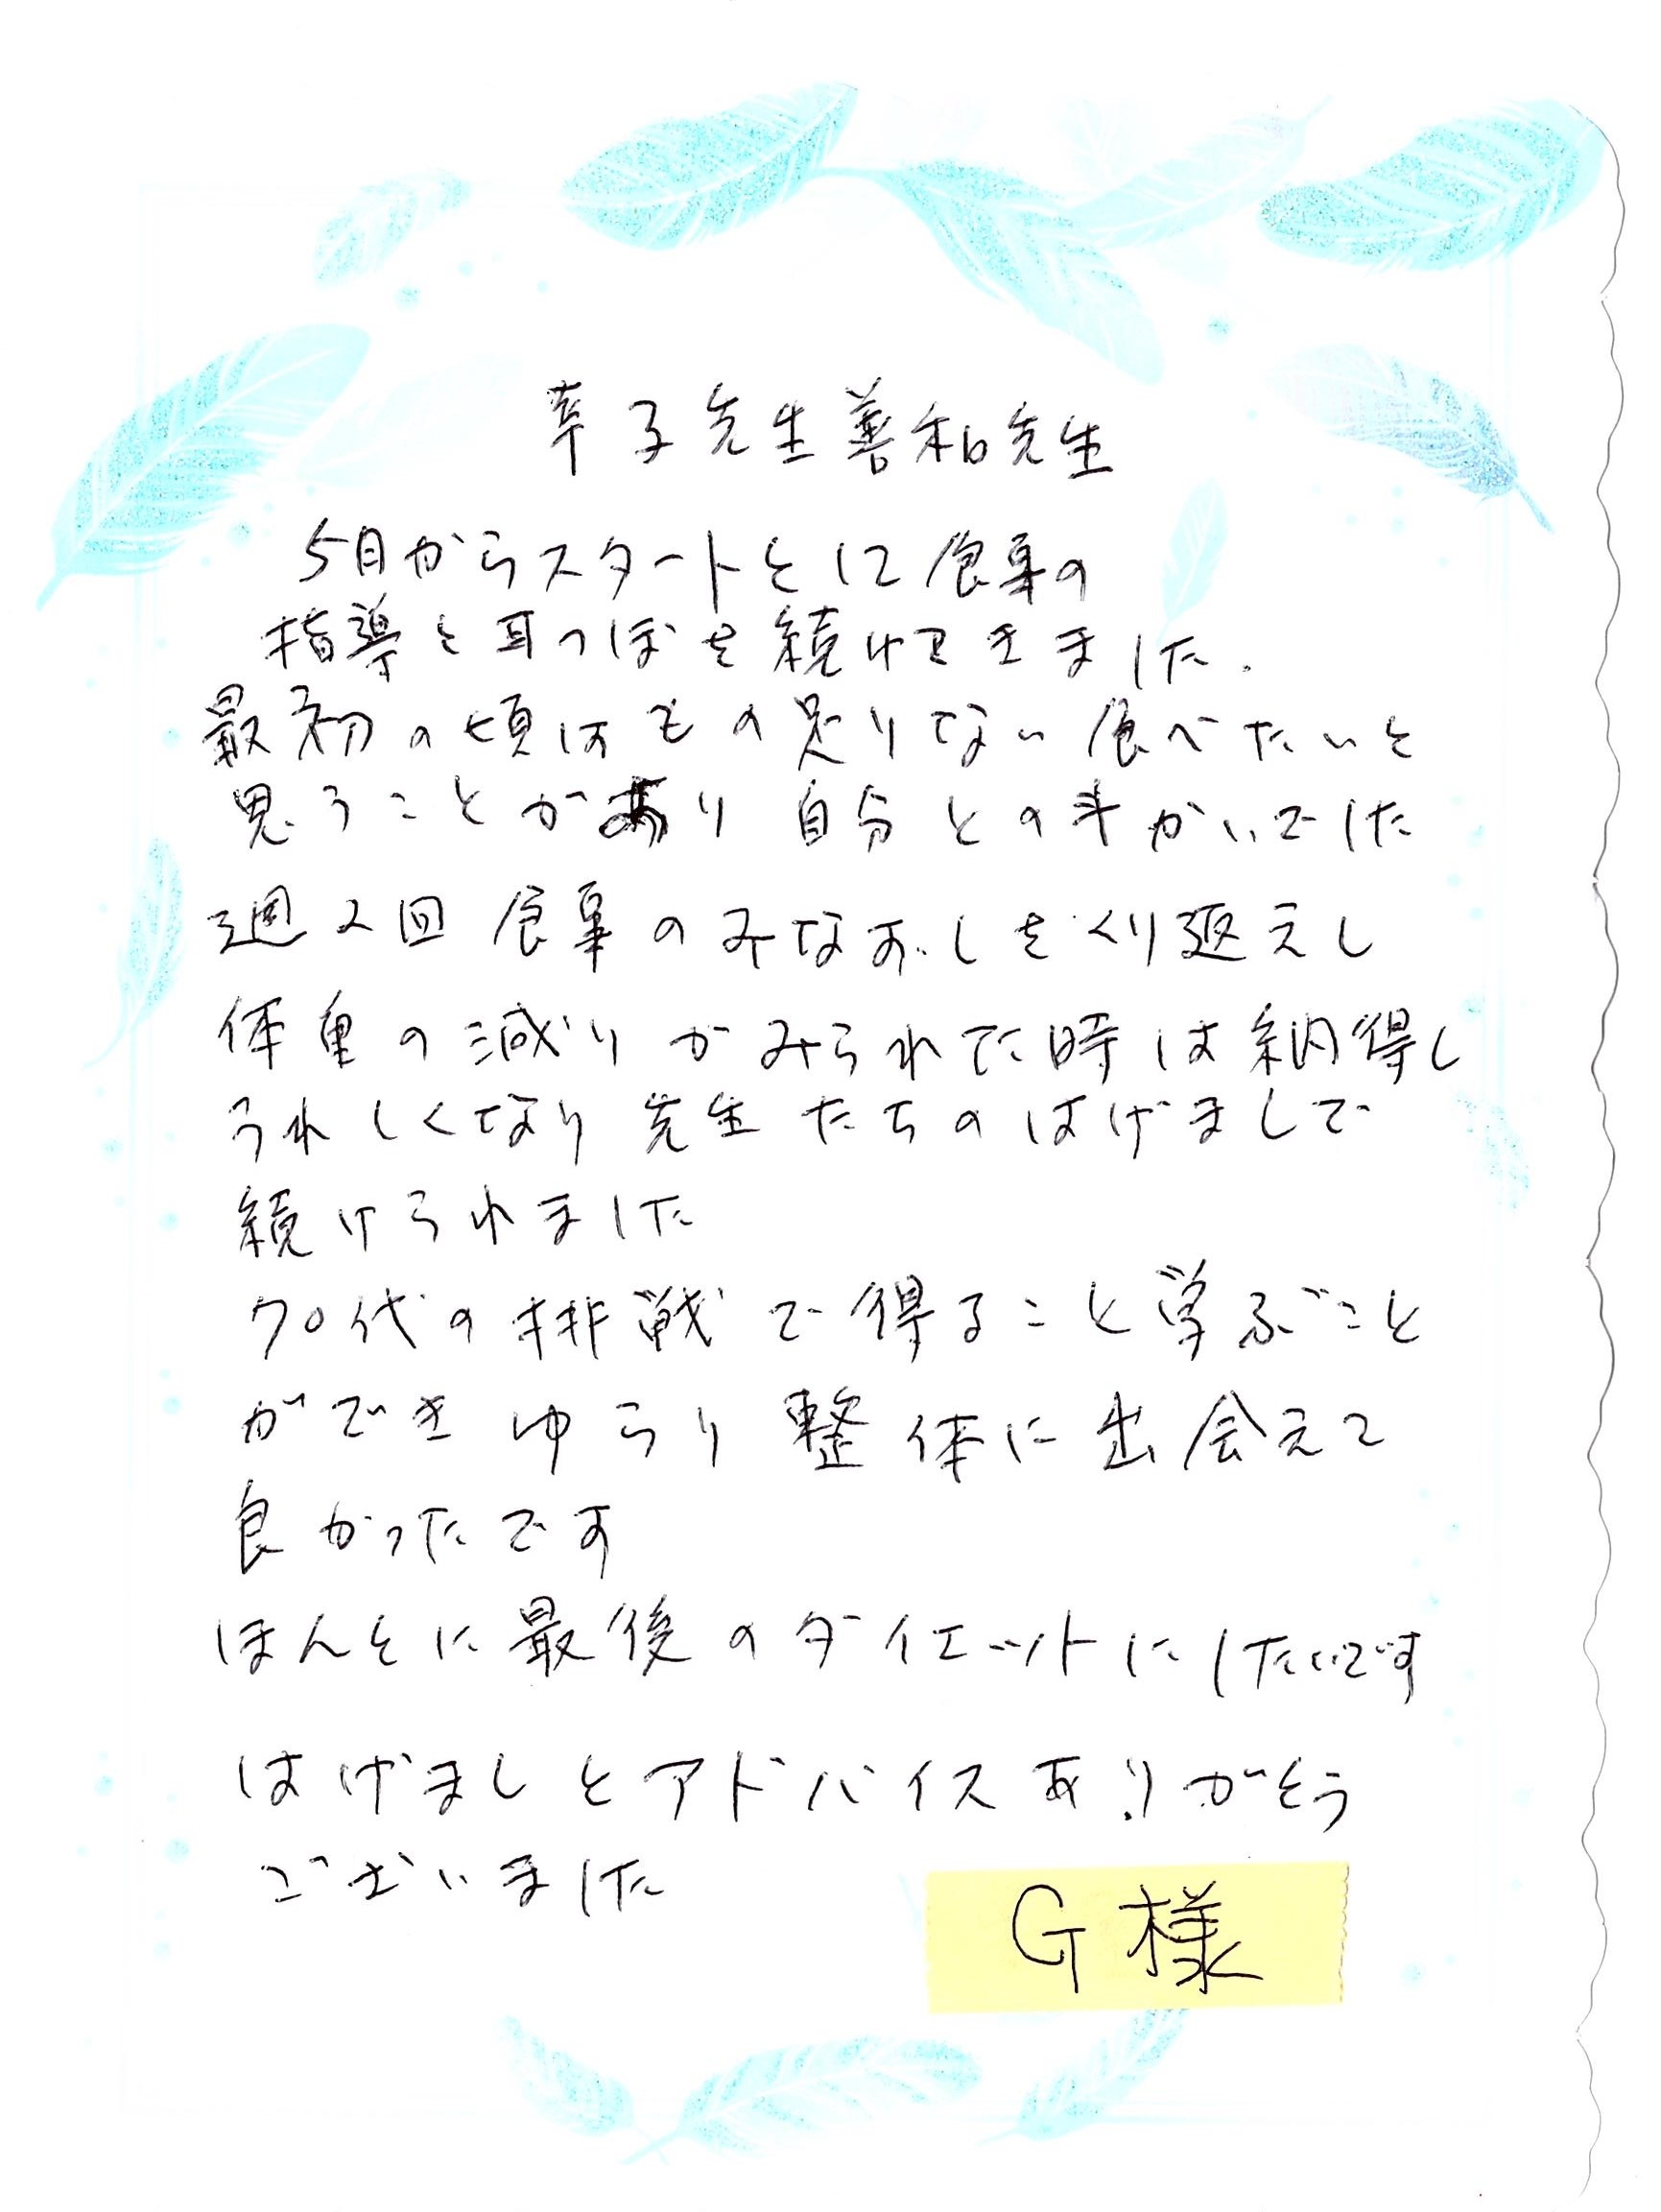 幸子先生善和先生
5月からスタートとに食事の
指導と耳つぼを続けてきました.
最初の頃はもの足りない食べたいと
思うことがあり 自分との斗かいでした
週2回 食事のみなおしをくり返えし
体重の減りがみられてた時は納得し
うれしくなり 先生たちのはげましで
続けられました
70代の挑戦で得ること学ぶこと
ができ ゆらり 整体に出会えて
良かったです
ほんとに最後のダイエットにしたいです
はげましとアドバイスありがとう
ございました
G様